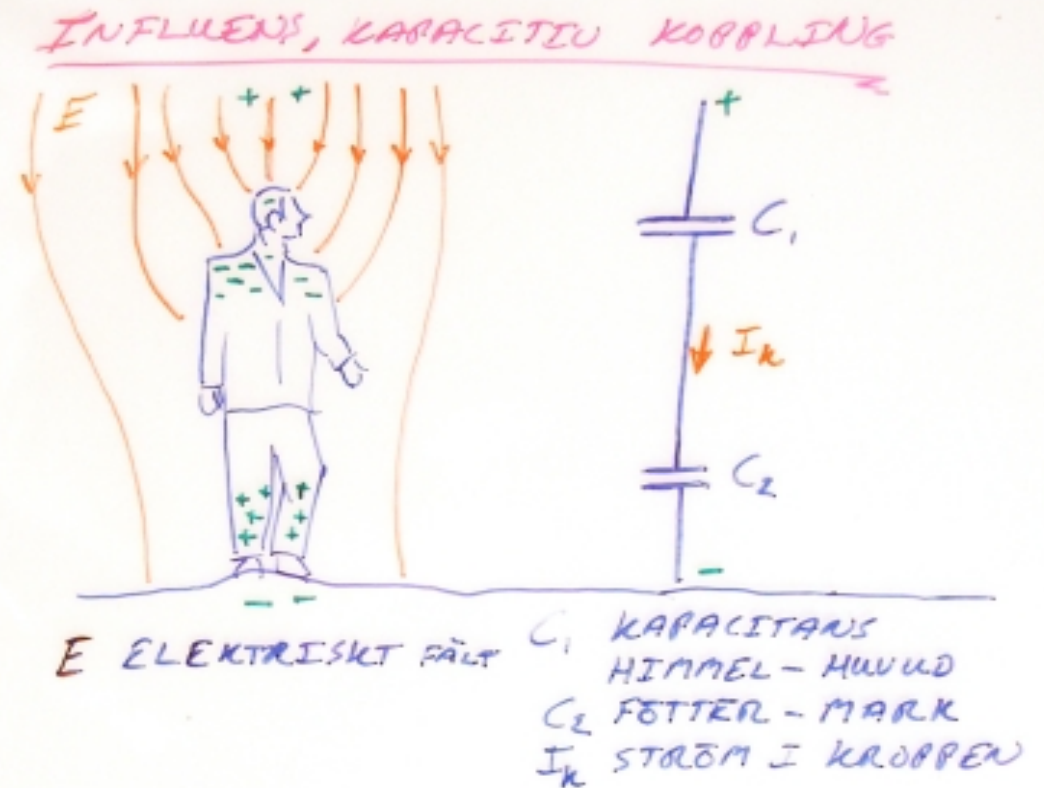 INFLUENS, KAPACITIV KOPPLING
E
+ +
+
C₁
I_K
C₂
-
- -
E ELEKTRISKT FÄLT
C₁ KAPACITANS
HIMMEL - HUVUD
C₂ FÖTTER - MARK
I_K STRÖM I KROPPEN